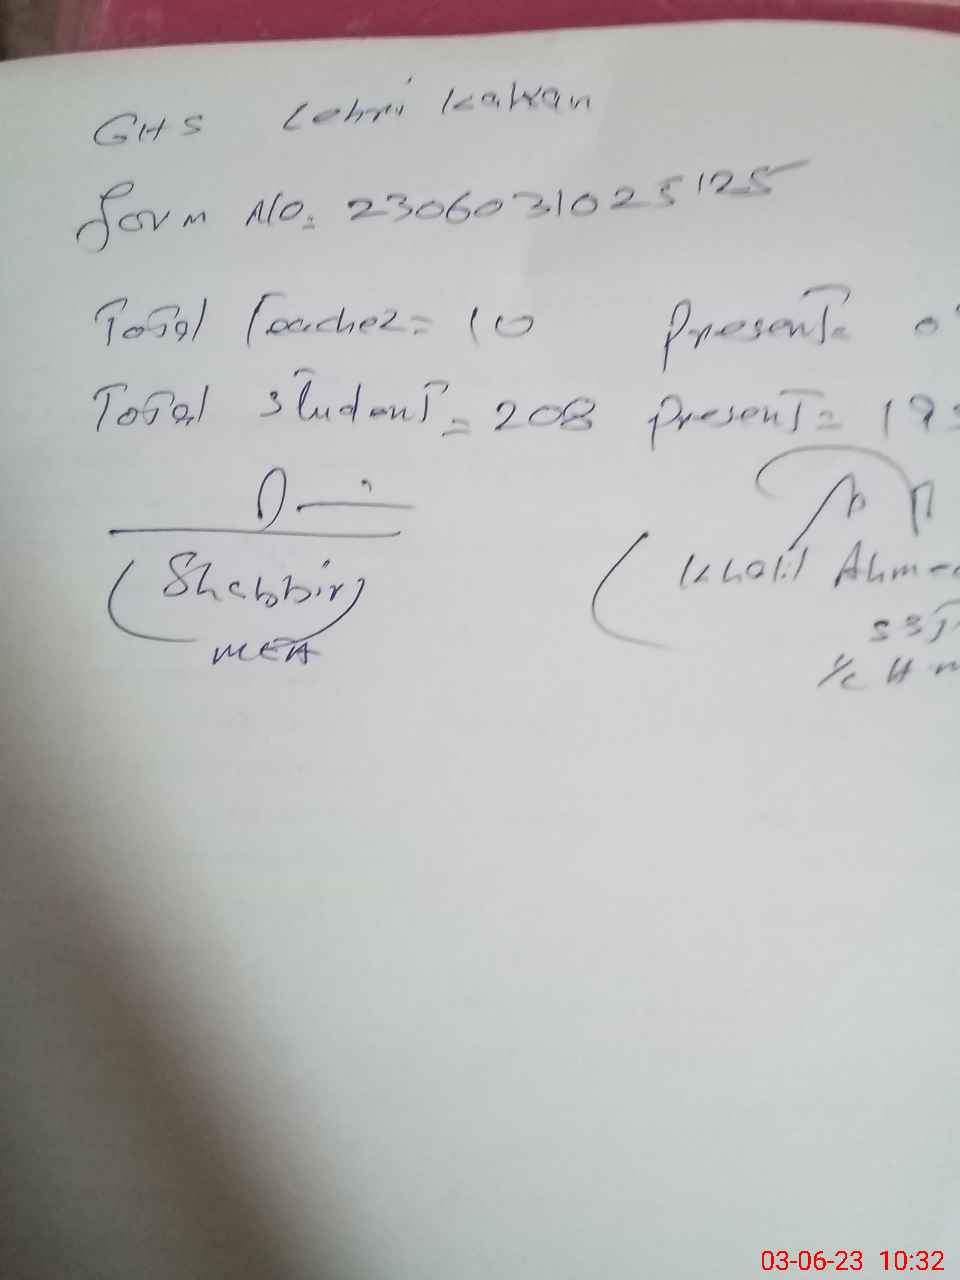 GHS Lehri Katran
form No. 2306031025125
Total Teacher = 10 Present =
Total Student = 208 Present = 19
(Shabbir)
MEA
(Khalil Ahmed
SST
I/C H.M
03-06-23 10:32